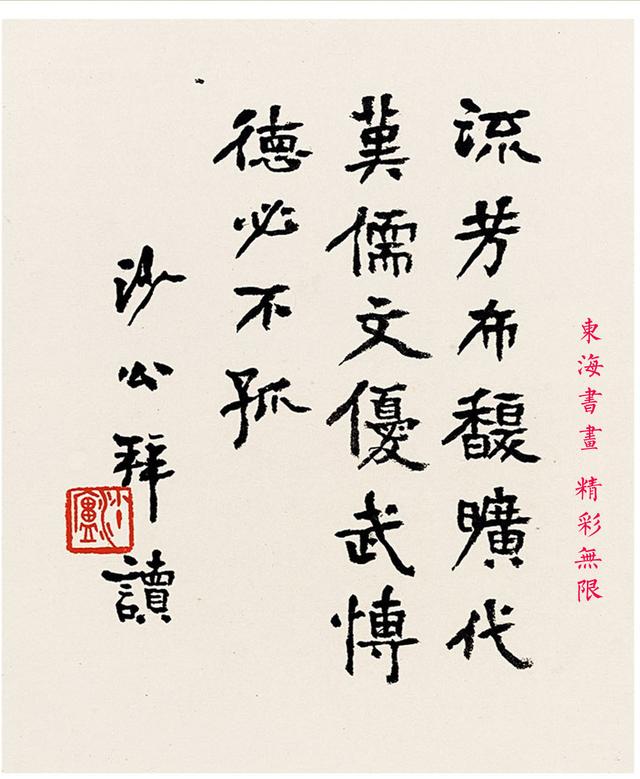 東海書畫 精彩無限
流芳布馥曠代
英儒文優武愽
德必不孤
沙公拜讀